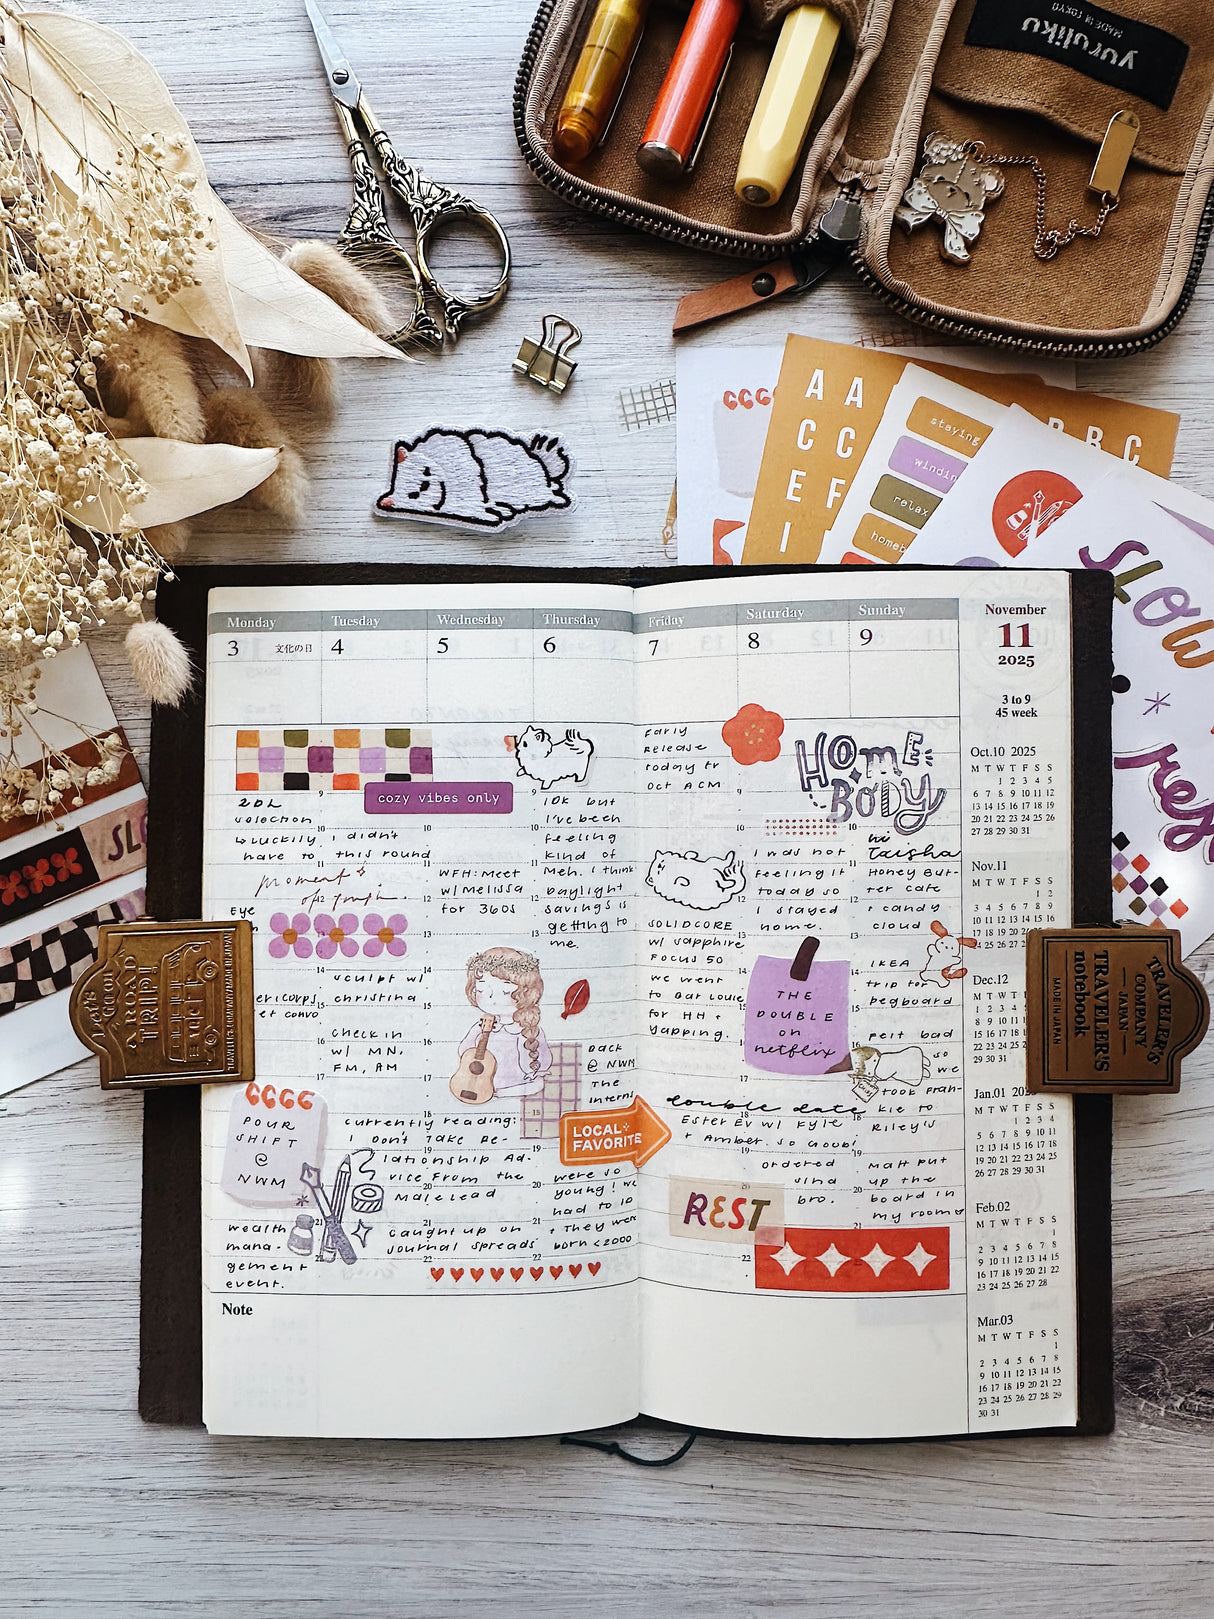 yuruliku
MADE IN TOKYO
A A
C C
E F
I
B B C
staying
windin
relax
homeb
SLOW
rest
SLO
Monday
Tuesday
Wednesday
Thursday
Friday
Saturday
Sunday
3 文化の日
4
5
6
7
8
9
November
11
2025
3 to 9
45 week
cozy vibes only
2DL
selection
↳ luckily I didn't
have to this round
moment
of
Eye
ericorps
et convo
POUR
SHIFT
@
NWM
wealth
mana-
gement
event.
sculpt w/
christina
check in
w/ MN,
FM, AM
currently reading:
I Don't Take Re-
lationship Ad-
vice From the
Male lead
caught up on
journal spreads
WFH: Meet
w/ Melissa
for 360s
10k but
I've been
feeling
kind of
meh. I think
Daylight
savings is
getting to
me.
Back
@ NWM
The
interns
LOCAL
FAVORITE
were so
young! we
had to ID
+ They were
born <2000
Early
Release
today fr
Oct ACM
SOLIDCORE
w/ sapphire
FOCUS 50
we went
to Bar Louie
for HH +
yapping.
double date
Ester Ev w/ Kyle
+ Amber. so good!
ordered
sind
bro.
REST
HOME
BODY
I was not
feeling it
today so
I stayed
home.
THE
DOUBLE
on
netflix
hi
Taisha
Honey But-
ter cafe
+ candy
cloud
IKEA
trip for
pegboard
felt bad
so
we
took Fran-
kie to
Riley's
Matt put
up the
board in
my room
Oct.10 2025
M T W T F S S
1 2 3 4 5
6 7 8 9 10 11 12
13 14 15 16 17 18 19
20 21 22 23 24 25 26
27 28 29 30 31
Nov.11
M T W T F S S
1 2
3 4 5 6 7 8 9
10 11 12 13 14 15 16
Dec.12
Jan.01
M T W T F S S
1 2 3 4
5 6 7 8 9 10 11
12 13 14 15 16 17 18
19 20 21 22 23 24 25
26 27 28 29 30 31
Feb.02
M T W T F S S
1
2 3 4 5 6 7 8
9 10 11 12 13 14 15
16 17 18 19 20 21 22
23 24 25 26 27 28
Mar.03
M T W T F S S
1
2 3 4 5 6 7 8
9 10 11 12 13 14 15
16 17 18 19 20 21 22
23 24 25 26 27 28 29
30 31
Note
Let's
go on
A ROAD
TRIP!
TRAVELER'S
COMPANY
JAPAN
TRAVELER'S
notebook
MADE IN JAPAN